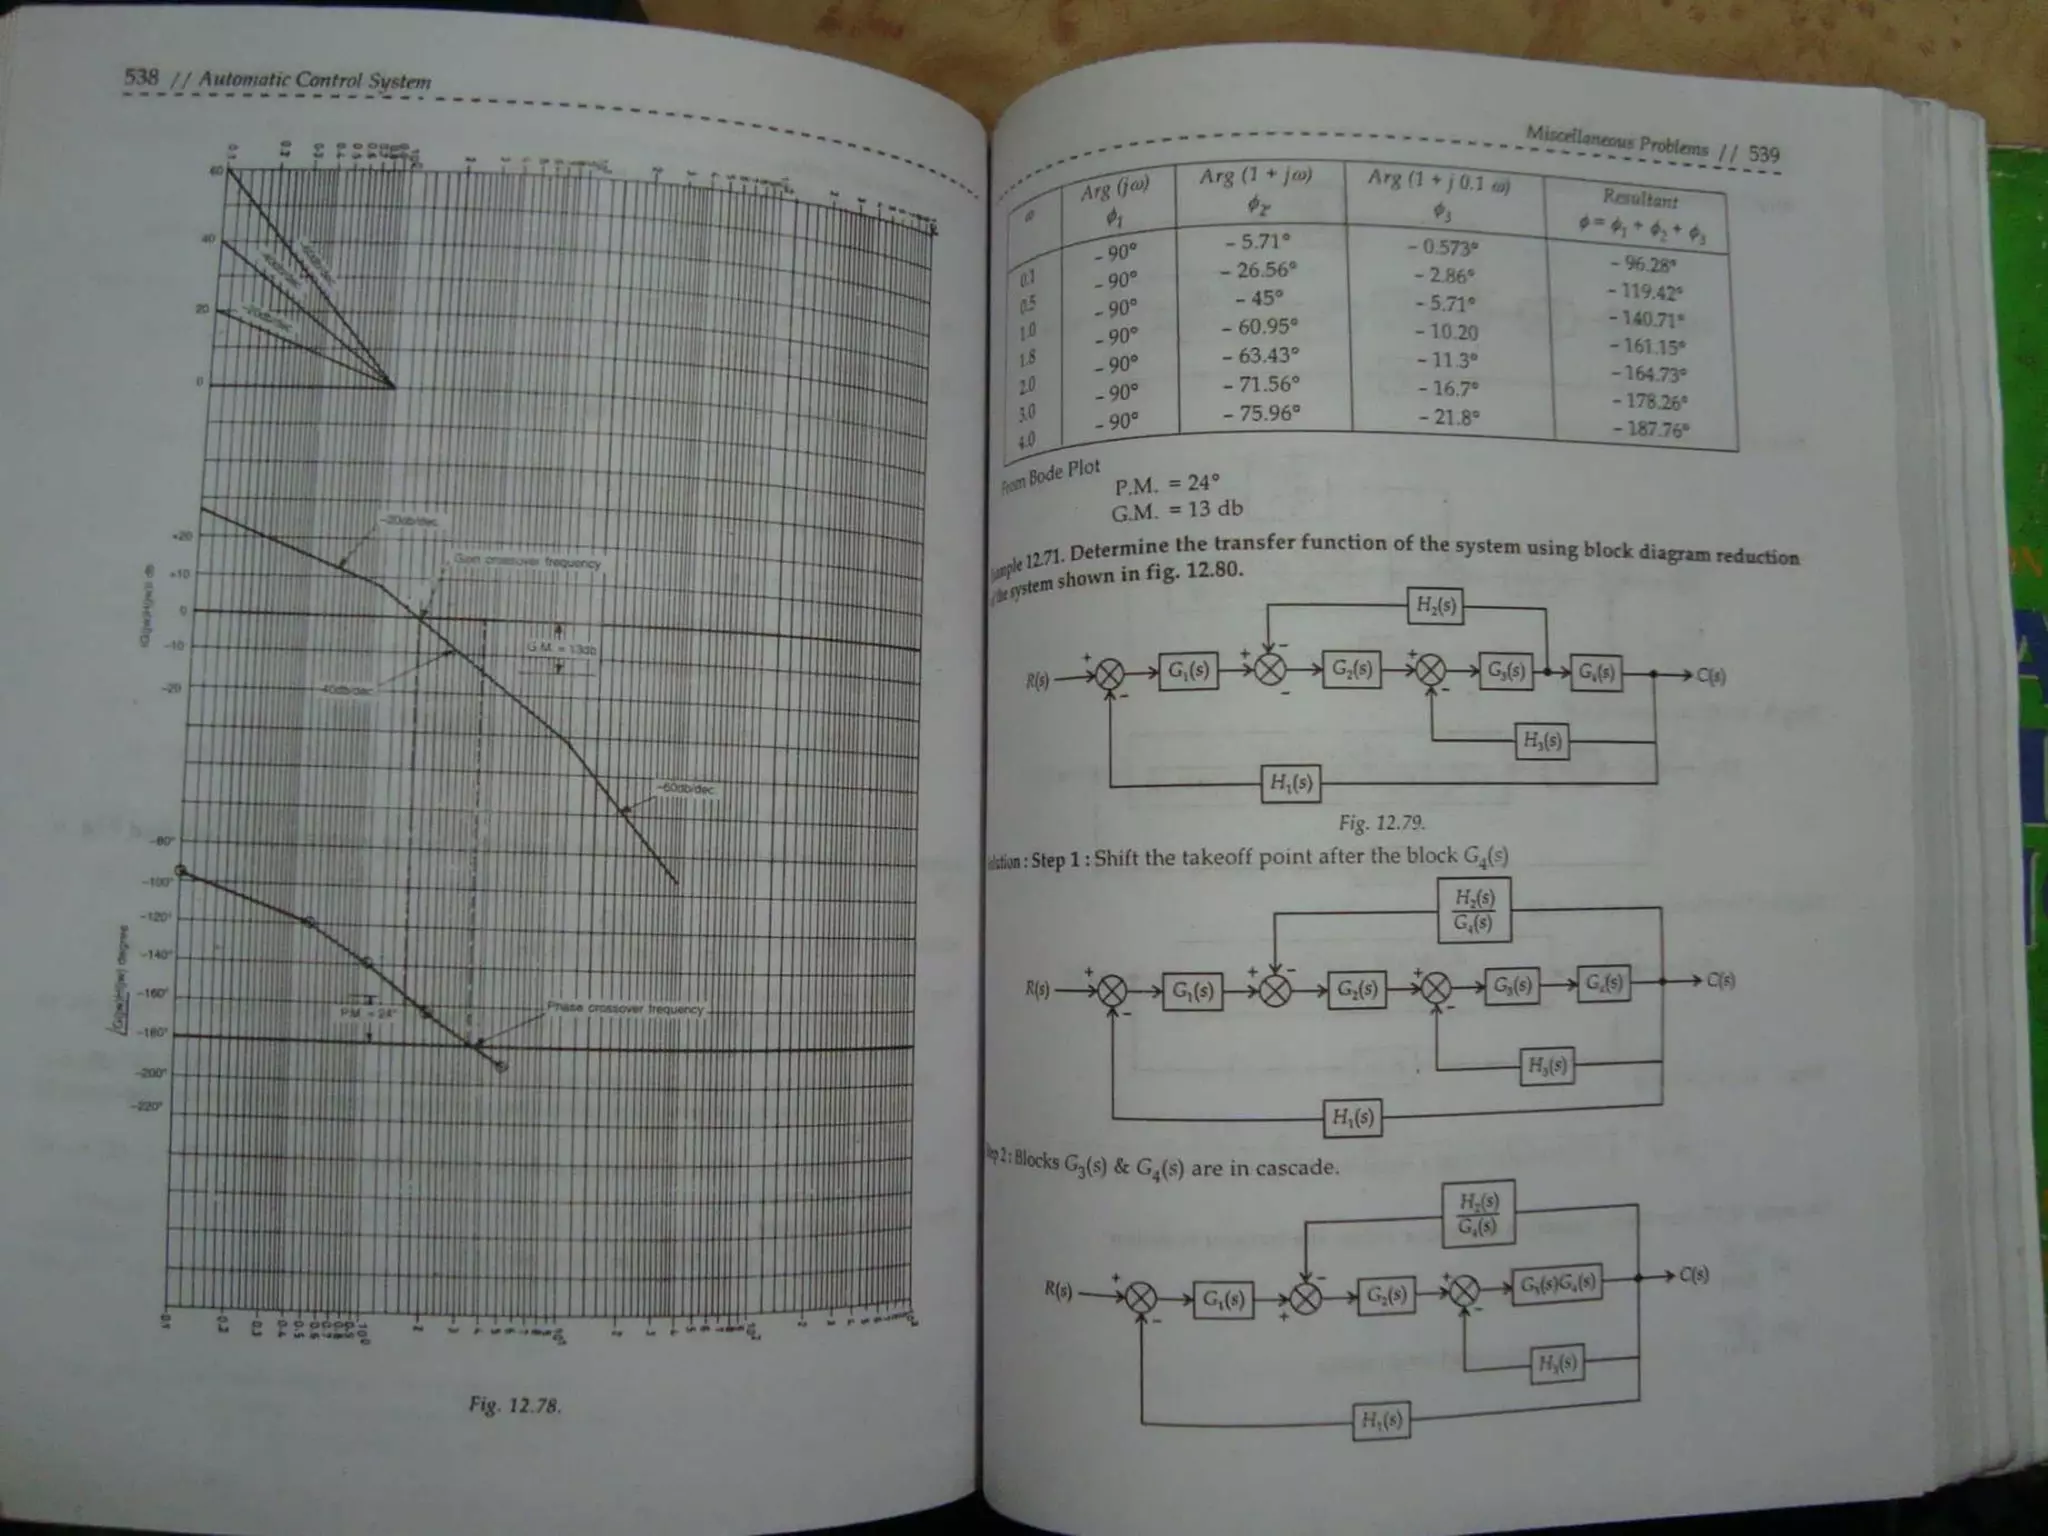 538 // Automatic Control System
0.1 0.2 0.3 0.4 0.5
60
40
20
0
-60db/dec
-40db/dec
-20db/dec
-20db/dec
+20
Gain crossover frequency
+10
0
G.M. = 13db
-10
-20
-40db/dec
-60db/dec
-80°
-100°
-120°
-140°
-160°
P.M. = 24°
Phase crossover frequency
-180°
-200°
-220°
Fig. 12.78.
Miscellaneous Problems // 539
ω Arg (jω) Arg (1 + jω) Arg (1 + j 0.1 ω) Resultant
ϕ₁ ϕ₂ ϕ₃ ϕ = ϕ₁ + ϕ₂ + ϕ₃
0.1 - 90° - 5.71° - 0.573° - 96.28°
0.5 - 90° - 26.56° - 2.86° - 119.42°
1.0 - 90° - 45° - 5.71° - 140.71°
1.8 - 90° - 60.95° - 10.20 - 161.15°
2.0 - 90° - 63.43° - 11.3° - 164.73°
3.0 - 90° - 71.56° - 16.7° - 178.26°
4.0 - 90° - 75.96° - 21.8° - 187.76°
From Bode Plot
P.M. = 24°
G.M. = 13 db
12.71. Determine the transfer function of the system using block diagram reduction
system shown in fig. 12.80.
H₂(s)
R(s) + - G₁(s) + - - G₂(s) + - G₃(s) G₄(s) C(s)
H₃(s)
H₁(s)
Fig. 12.79.
: Step 1 : Shift the takeoff point after the block G₄(s)
H₂(s)
G₄(s)
R(s) + - G₁(s) + - G₂(s) + - G₃(s) G₄(s) C(s)
H₃(s)
H₁(s)
2 : Blocks G₃(s) & G₄(s) are in cascade.
H₂(s)
G₄(s)
R(s) + - G₁(s) + - G₂(s) + - G₃(s)G₄(s) C(s)
H₃(s)
H₁(s)